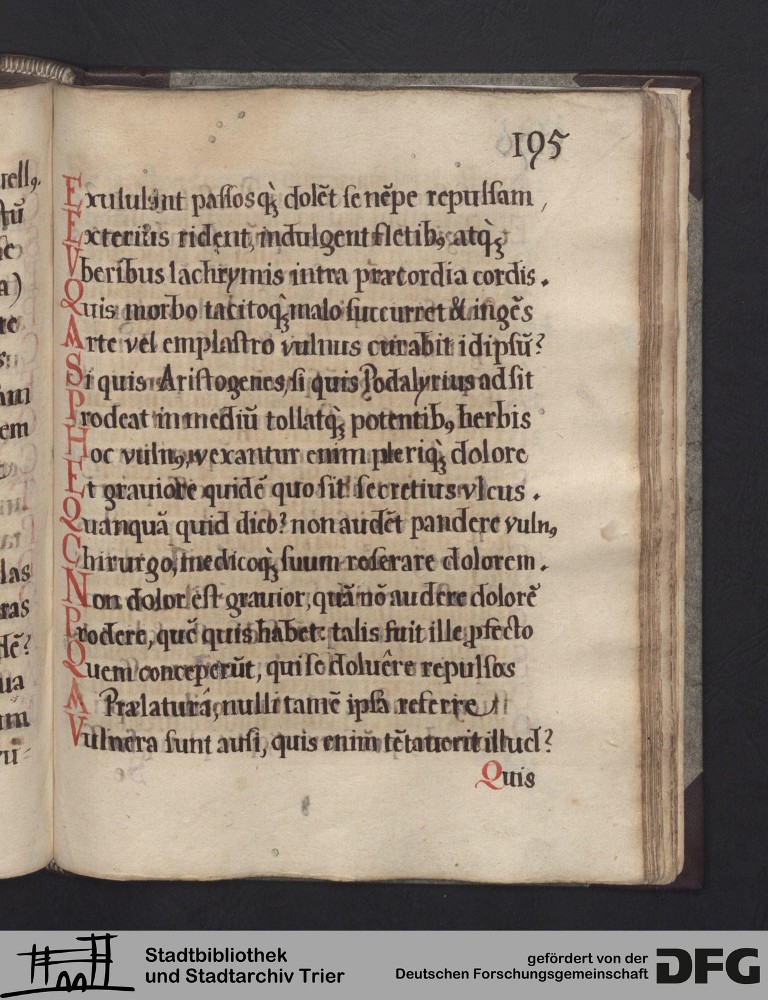 195
Exululant passosq́ꝫ dolēt se nēpe repulsam,
Exteriùs rident, indulgent fletibꝰ, atq́ꝫ
Vberibus lachrymis intra præcordia cordis.
Quis morbo tacitoq́ꝫ malo succurret & ingēs
Arte vel emplastro vulnus curabit idipsū?
Si quis Aristogenes, si quis Podalyrius adsit
Prodeat in mediū tollatq́ꝫ potentibꝰ herbis
Hoc vulnꝰ, vexantur enim pleriq́ꝫ dolore
Et grauiore quidē quo sit secretius vlcus.
Quanquā quid dico? non audēt pandere vulnꝰ
Chirurgo, medicoq́ꝫ suum reserare dolorem.
Non dolor est grauior, quā nō audere dolorē
Prodere, quē quis habet: talis fuit ille ꝓfecto
Quem conceperūt, qui se doluêre repulsos
A Prælaturâ, nulli tamē ipsa referre
Vulnera sunt ausi, quis enim tētauerit illud?
Quis
uell9.
tū
a)
te
am
em
las
ras
dē?
ua
um
Stadtbibliothek
und Stadtarchiv Trier
gefördert von der
Deutschen Forschungsgemeinschaft
DFG